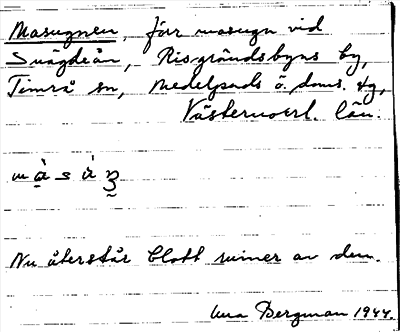 Masugnen, förr masugn vid
Svägdeån, Risgrändsbyns by,
Timrå sn, Medelpads ö. doms. tg,
Västernorrl. län.
Nu återstår blott ruiner av den.
Bergman 1944.